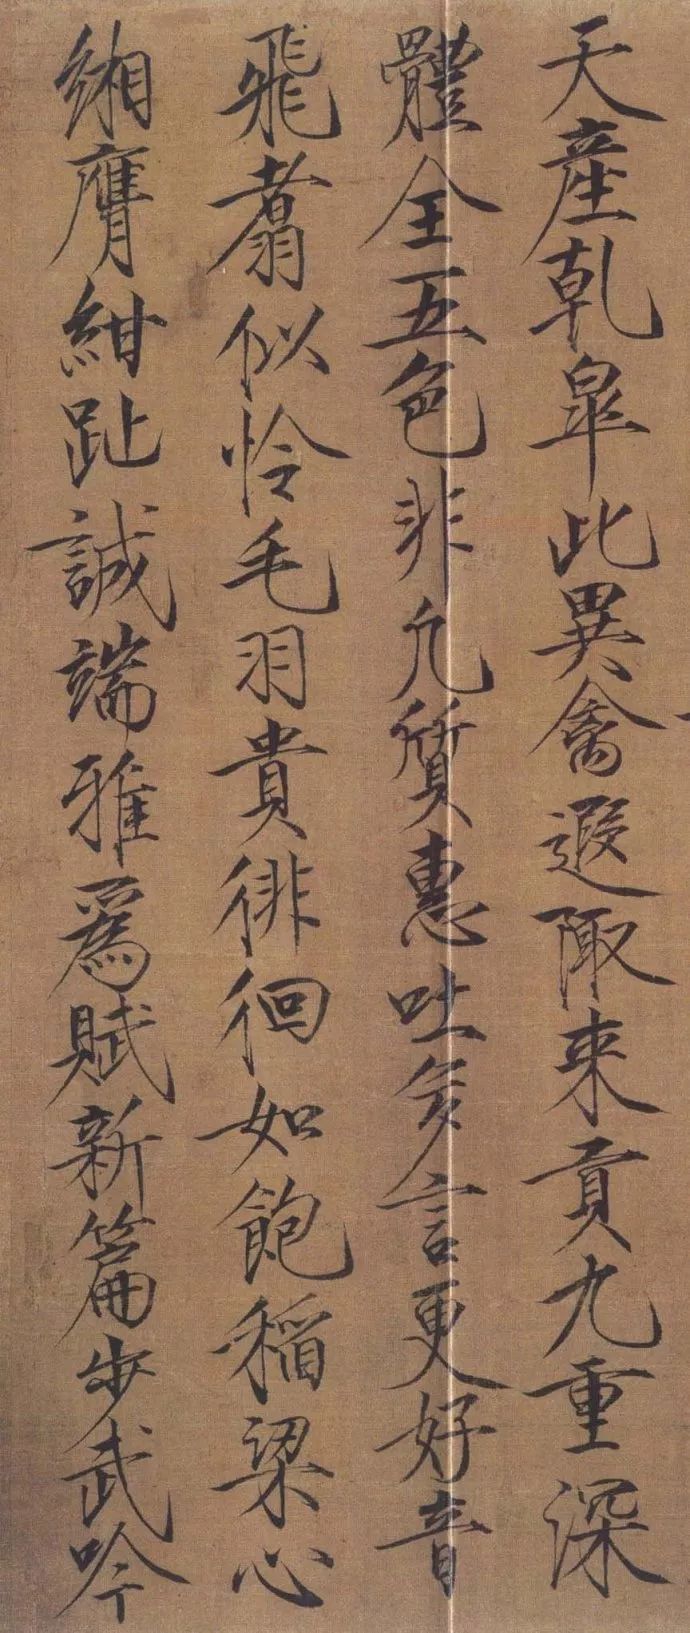 天產乾皐此異禽遐陬来貢九重深
體全五色非凢質惠吐多言更好音
飛翥似怜毛羽貴徘徊如飽稲粱心
緗膺紺趾誠端雅爲賦新篇步武吟